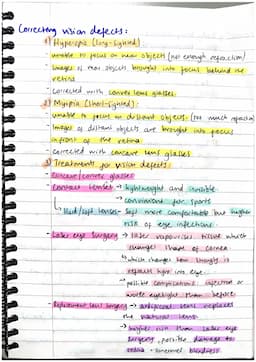 Correcting vision defects:
1) Hyperopia (long-sighted):
- unable to focus on near objects (not enough refraction)
- Images of near objects brought into focus behind the
retina
- Corrected with convex lens glasses
2) Myopia (short-sighted):
- unable to focus on distant objects (too much refraction)
- Images of distant objects are brought into focus
infront of the retina
- Corrected with concave lens glasses
3) Treatments for vision defects:
- Concave/convex glasses
- Contact lenses → lightweight and invisible
→ convenient for sports
↳ Hard/soft lenses → Soft more comfortable but higher
risk of eye infections
- Laser eye surgery → laser vapourises tissue which
changes shape of cornea
↳ which changes how strongly it
refracts light into eye
→ possible complications: infection or
worse eyesight than before
- Replacement lens surgery → artificial lens replaces
the natural lens
→ higher risk than laser eye
surgery, possible damage to
retina =